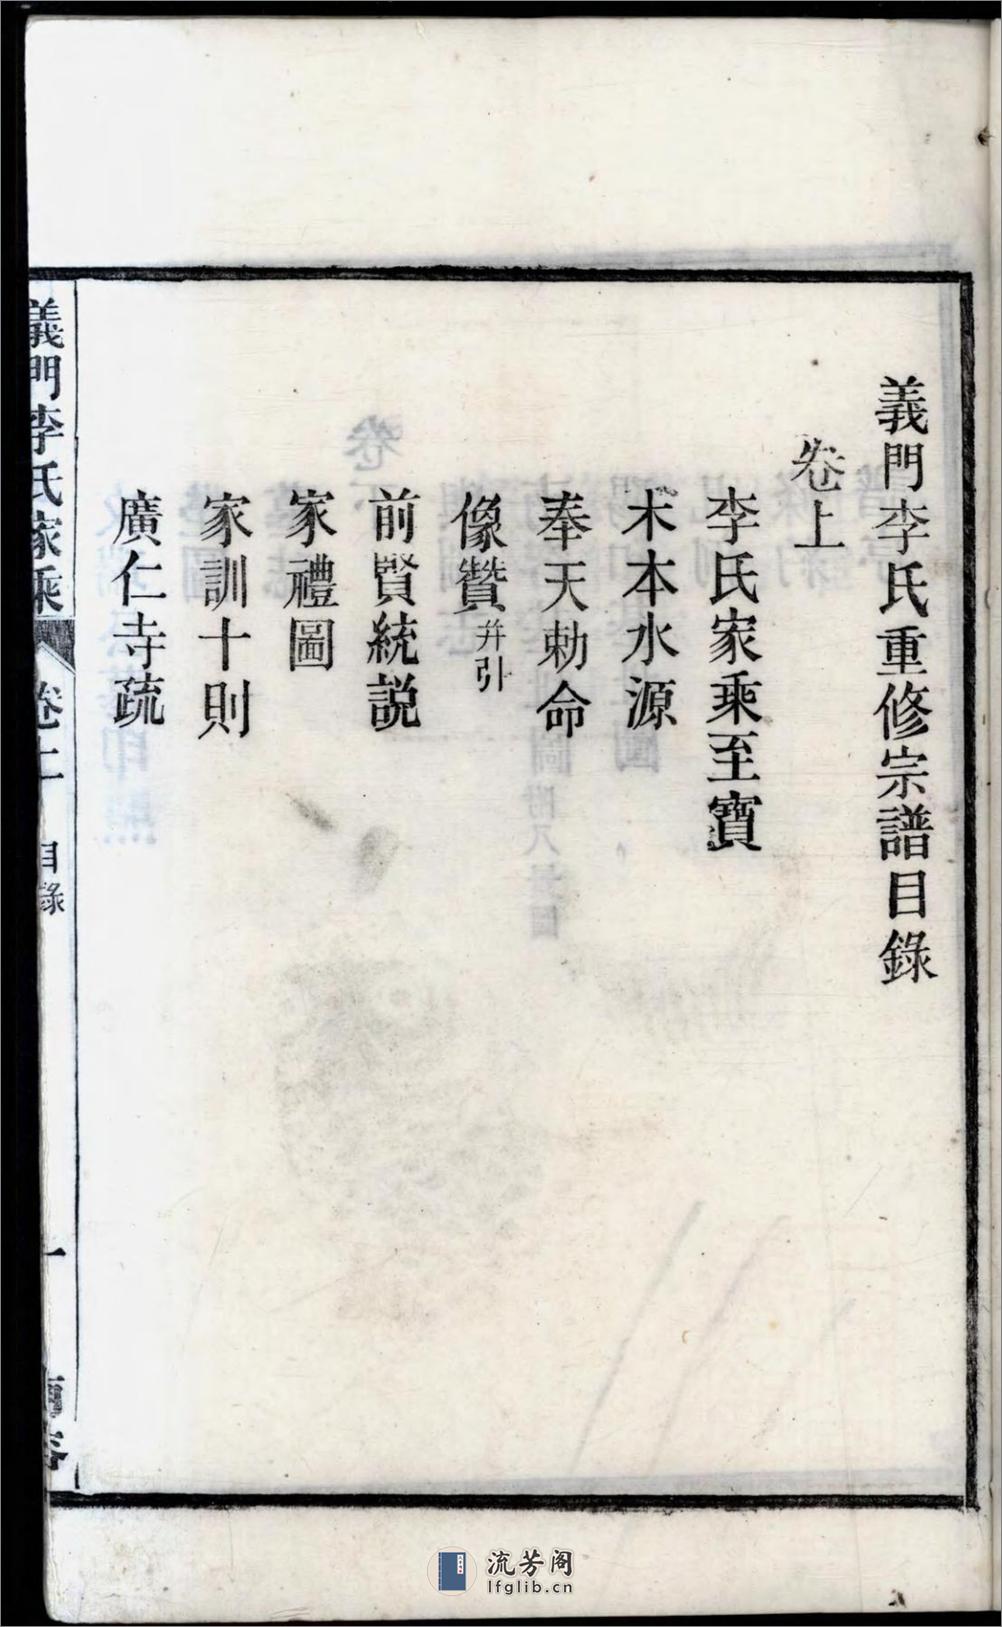 義門李氏重修宗譜目錄
卷上
李氏家乘至寶
木本水源
奉天勅命
像贊并引
前賢統説
家禮圖
家訓十則
廣仁寺疏
義門李氏家乘
卷上
目錄
一
流芳阁
lfglib.cn